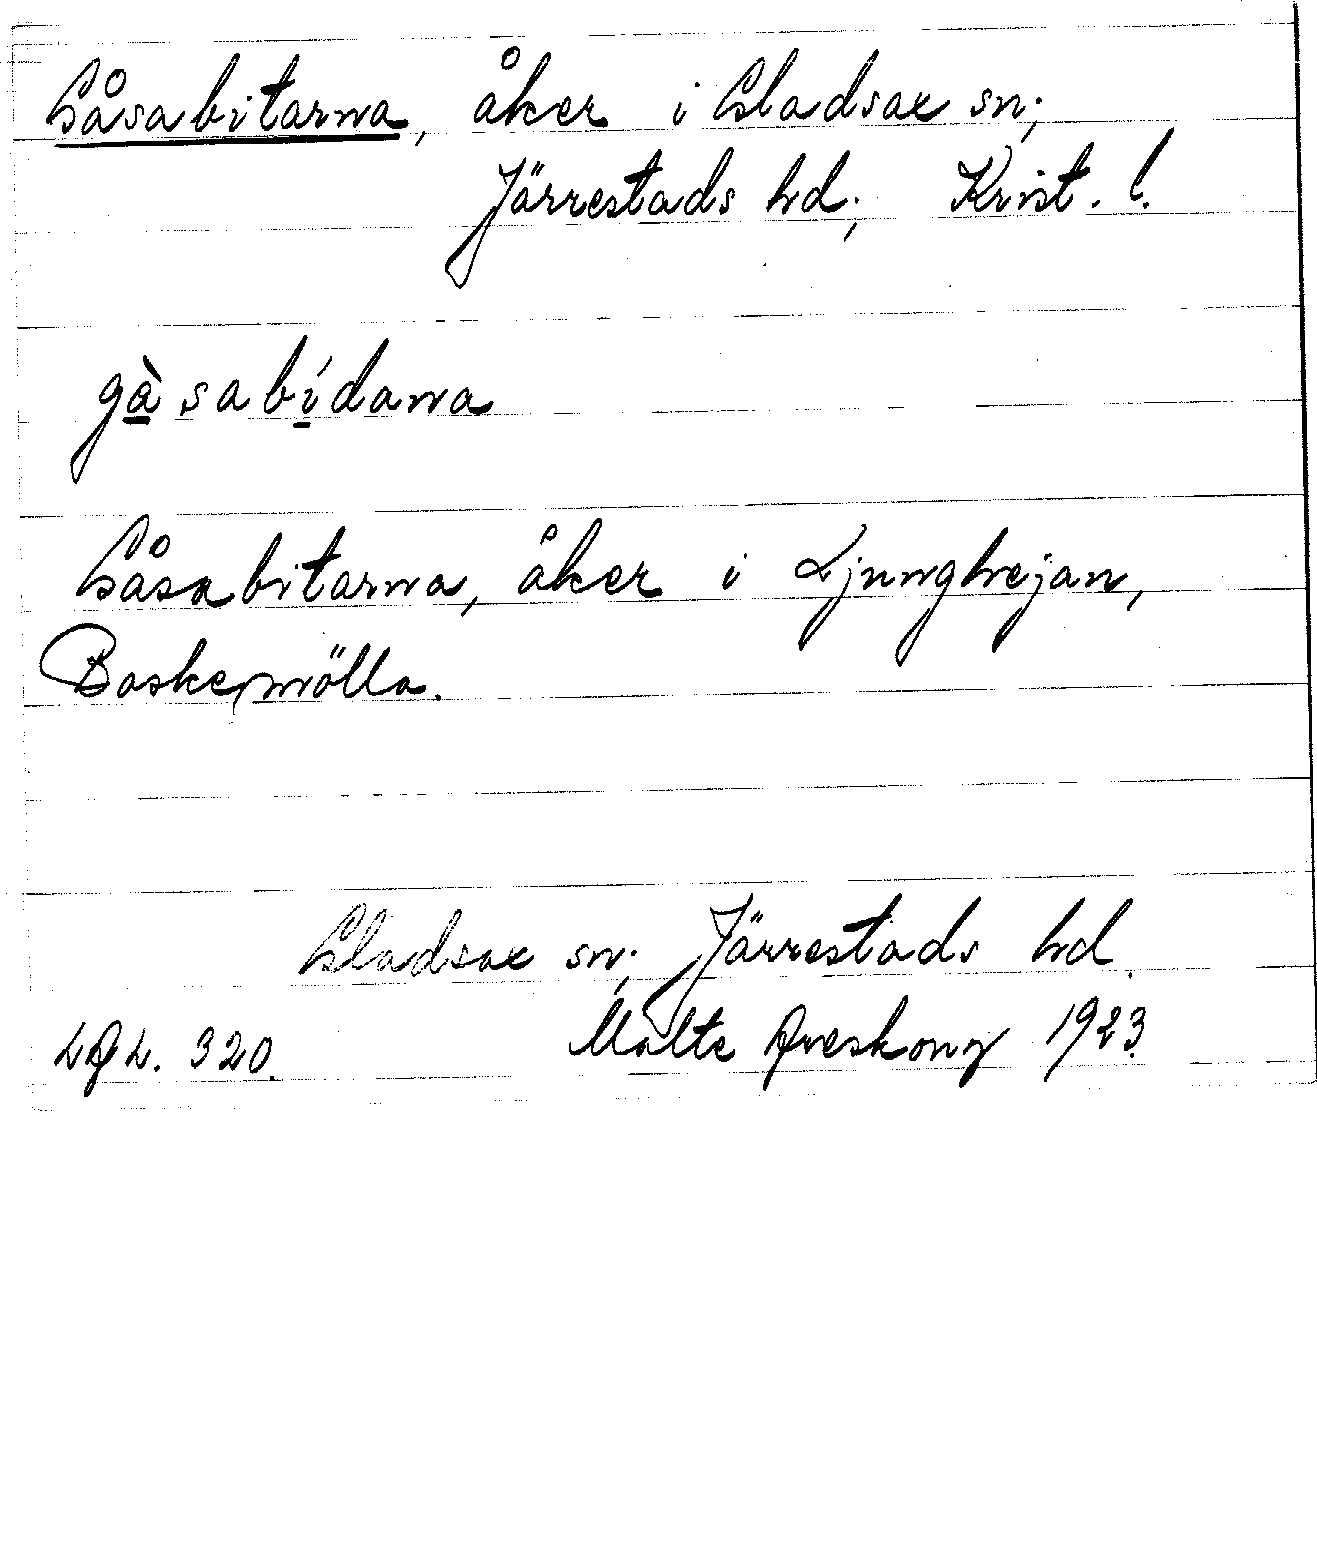 Gåsabitarna, åker i Gladsax sn;
Järrestads hd; Krist. l.
gàsabídarna
Gåsabitarna, åker i Ljunghejan,
Baskemölla.
Gladsax sn; Järrestads hd.
320. Malte 1923.